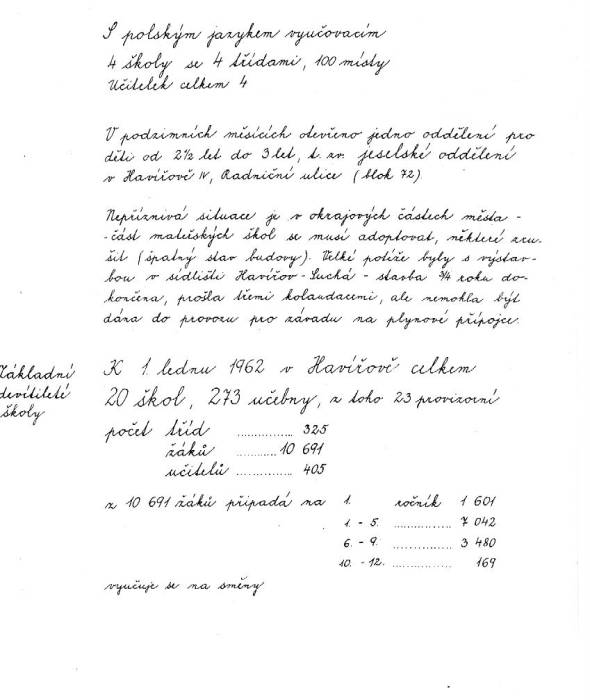 S polským jazykem vyučovacím
4 školy se 4 třídami, 100 místy
Učitelek celkem 4
V podzimních měsících otevřeno jedno oddělení pro
děti od 2½ let do 3 let, t. zv. jeselské oddělení
v Havířově IV, Radniční ulice (blok 72).
Nepříznivá situace je v okrajových částech města -
-část mateřských škol se musí adoptovat, některé zru-
šit (špatný stav budovy). Velké potíže byly s výstav-
bou v sídlišti Havířov-Suchá - stavba ¾ roku do-
končena, prošla třemi kolaudacemi, ale nemohla být
dána do provozu pro závadu na plynové přípojce.
Základní
devítileté
školy
K 1. lednu 1962 v Havířově celkem
20 škol, 273 učebny, z toho 23 provizorní
počet tříd ............... 325
žáků ........... 10 691
učitelů ............... 405
z 10 691 žáků připadá na 1. ročník 1 601
1. - 5. ............... 7 042
6. - 9. ............... 3 480
10. - 12. ............... 169
vyučuje se na směny